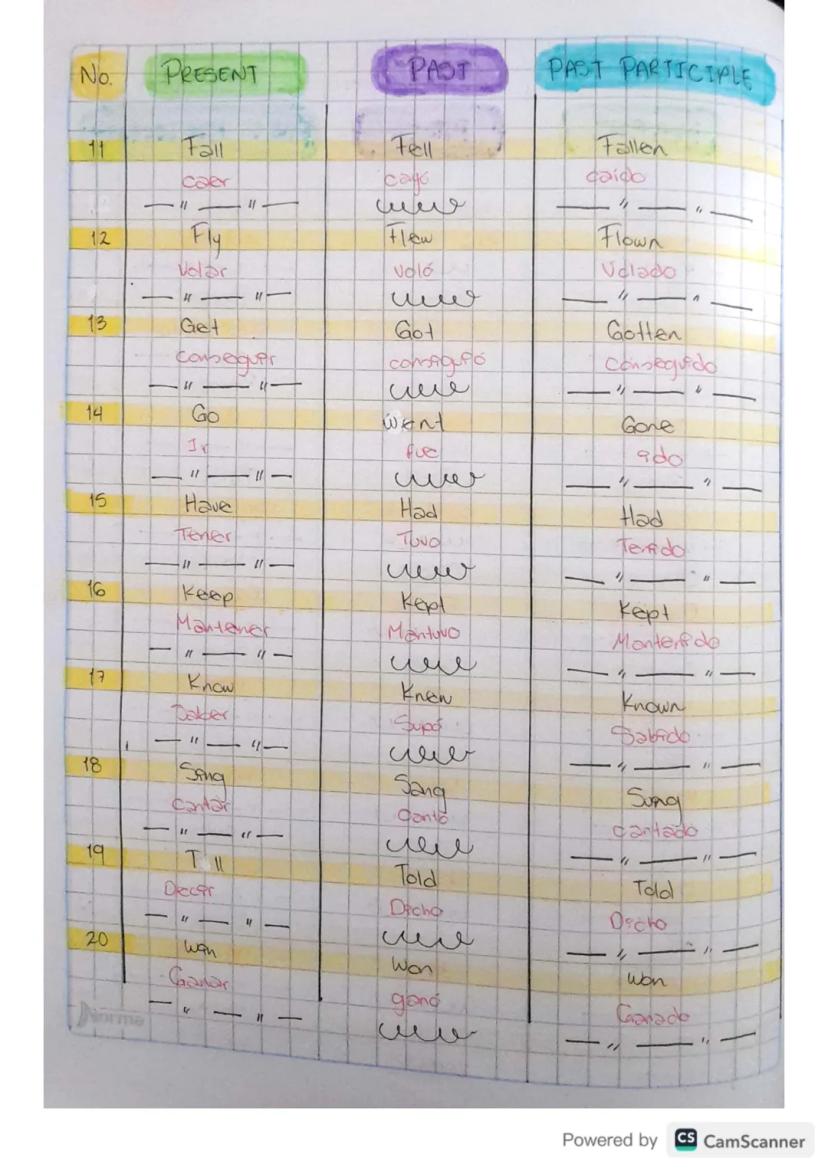 No. PRESENT PAST PAST PARTICIPLE
11 Fall Fell Fallen
caer cayó caído
12 Fly Flew Flown
Volar voló Volado
13 Get Got Gotten
conseguir consiguió conseguido
14 Go Went Gone
Ir fue ido
15 Have Had Had
Tener Tuvo Tenido
16 Keep Kept Kept
Mantener Mantuvo Mantenido
17 Know Knew Known
Saber Supó Sabido
18 Sing Sang Sung
Cantar cantó cantado
19 T ll Told Told
Decir Dicho Dicho
20 Won Won
Ganar ganó Ganado
Norma
Powered by CS CamScanner